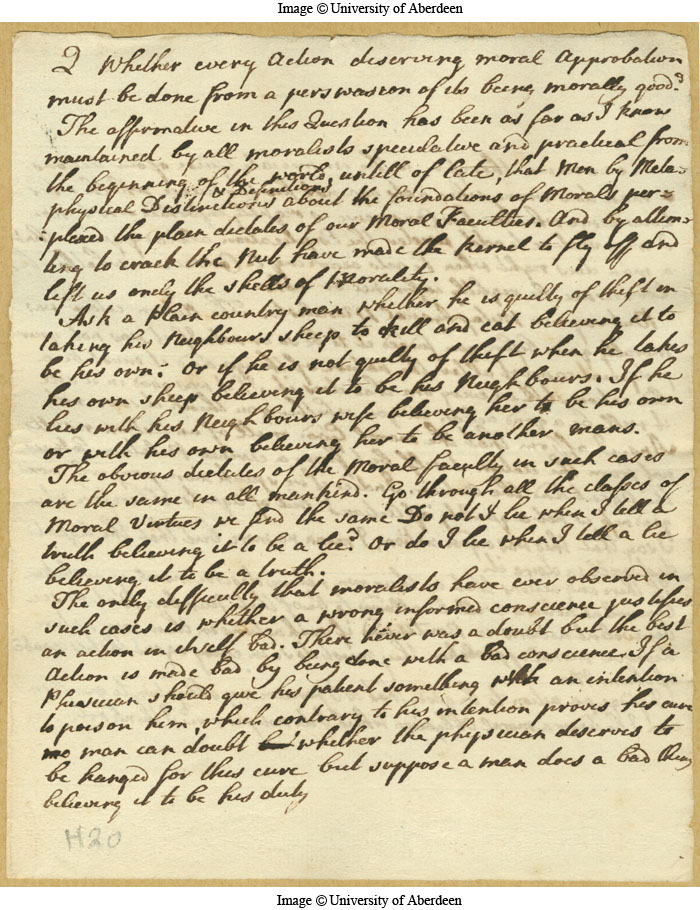 Image © University of Aberdeen
Q Whether every Action deserving moral Approbation
must be done from a perswasion of its being morally good?
The affirmative in this Question has been as far as I know
maintained by all moralists speculative and practical from
the beginning of the world, untill of late, that Men by Meta-
& Definitions
physical Distinctions about the foundations of Morals per=
:plexed the plain dictates of our Moral Faculties. And by attem=
ting to crack the Nut have made the kernel to fly off and
left us only the shells of Morality.
Ask a plain country man whether he is guilty of theft in
taking his Neighbours sheep to kill and eat believing it to
be his own; Or if he is not guilty of theft when he takes
his own sheep believing it to be his Neighbours. If he
lies with his Neighbours wife believing her to be his own
or with his own believing her to be another mans.
The obvious dictates of the Moral faculty in such cases
are the same in all mankind. Go through all the classes of
Moral Virtues we find the same Do not I lie when I tell a
truth believing it to be a lie? Or do I lie when I tell a lie
believing it to be a truth.
The only difficulty that moralists have ever observed in
such cases is whether a wrong informed conscience justifies
an action in itself bad. There never was a doubt but the best
Action is made bad by being done with a bad conscience. If a
Physician should give his patient something with an intention
to poison him, which contrary to his intention proves his cure
no man can doubt whether the physician deserves to
be hanged for this cure but suppose a man does a bad thing
believing it to be his duty
H20
Image © University of Aberdeen